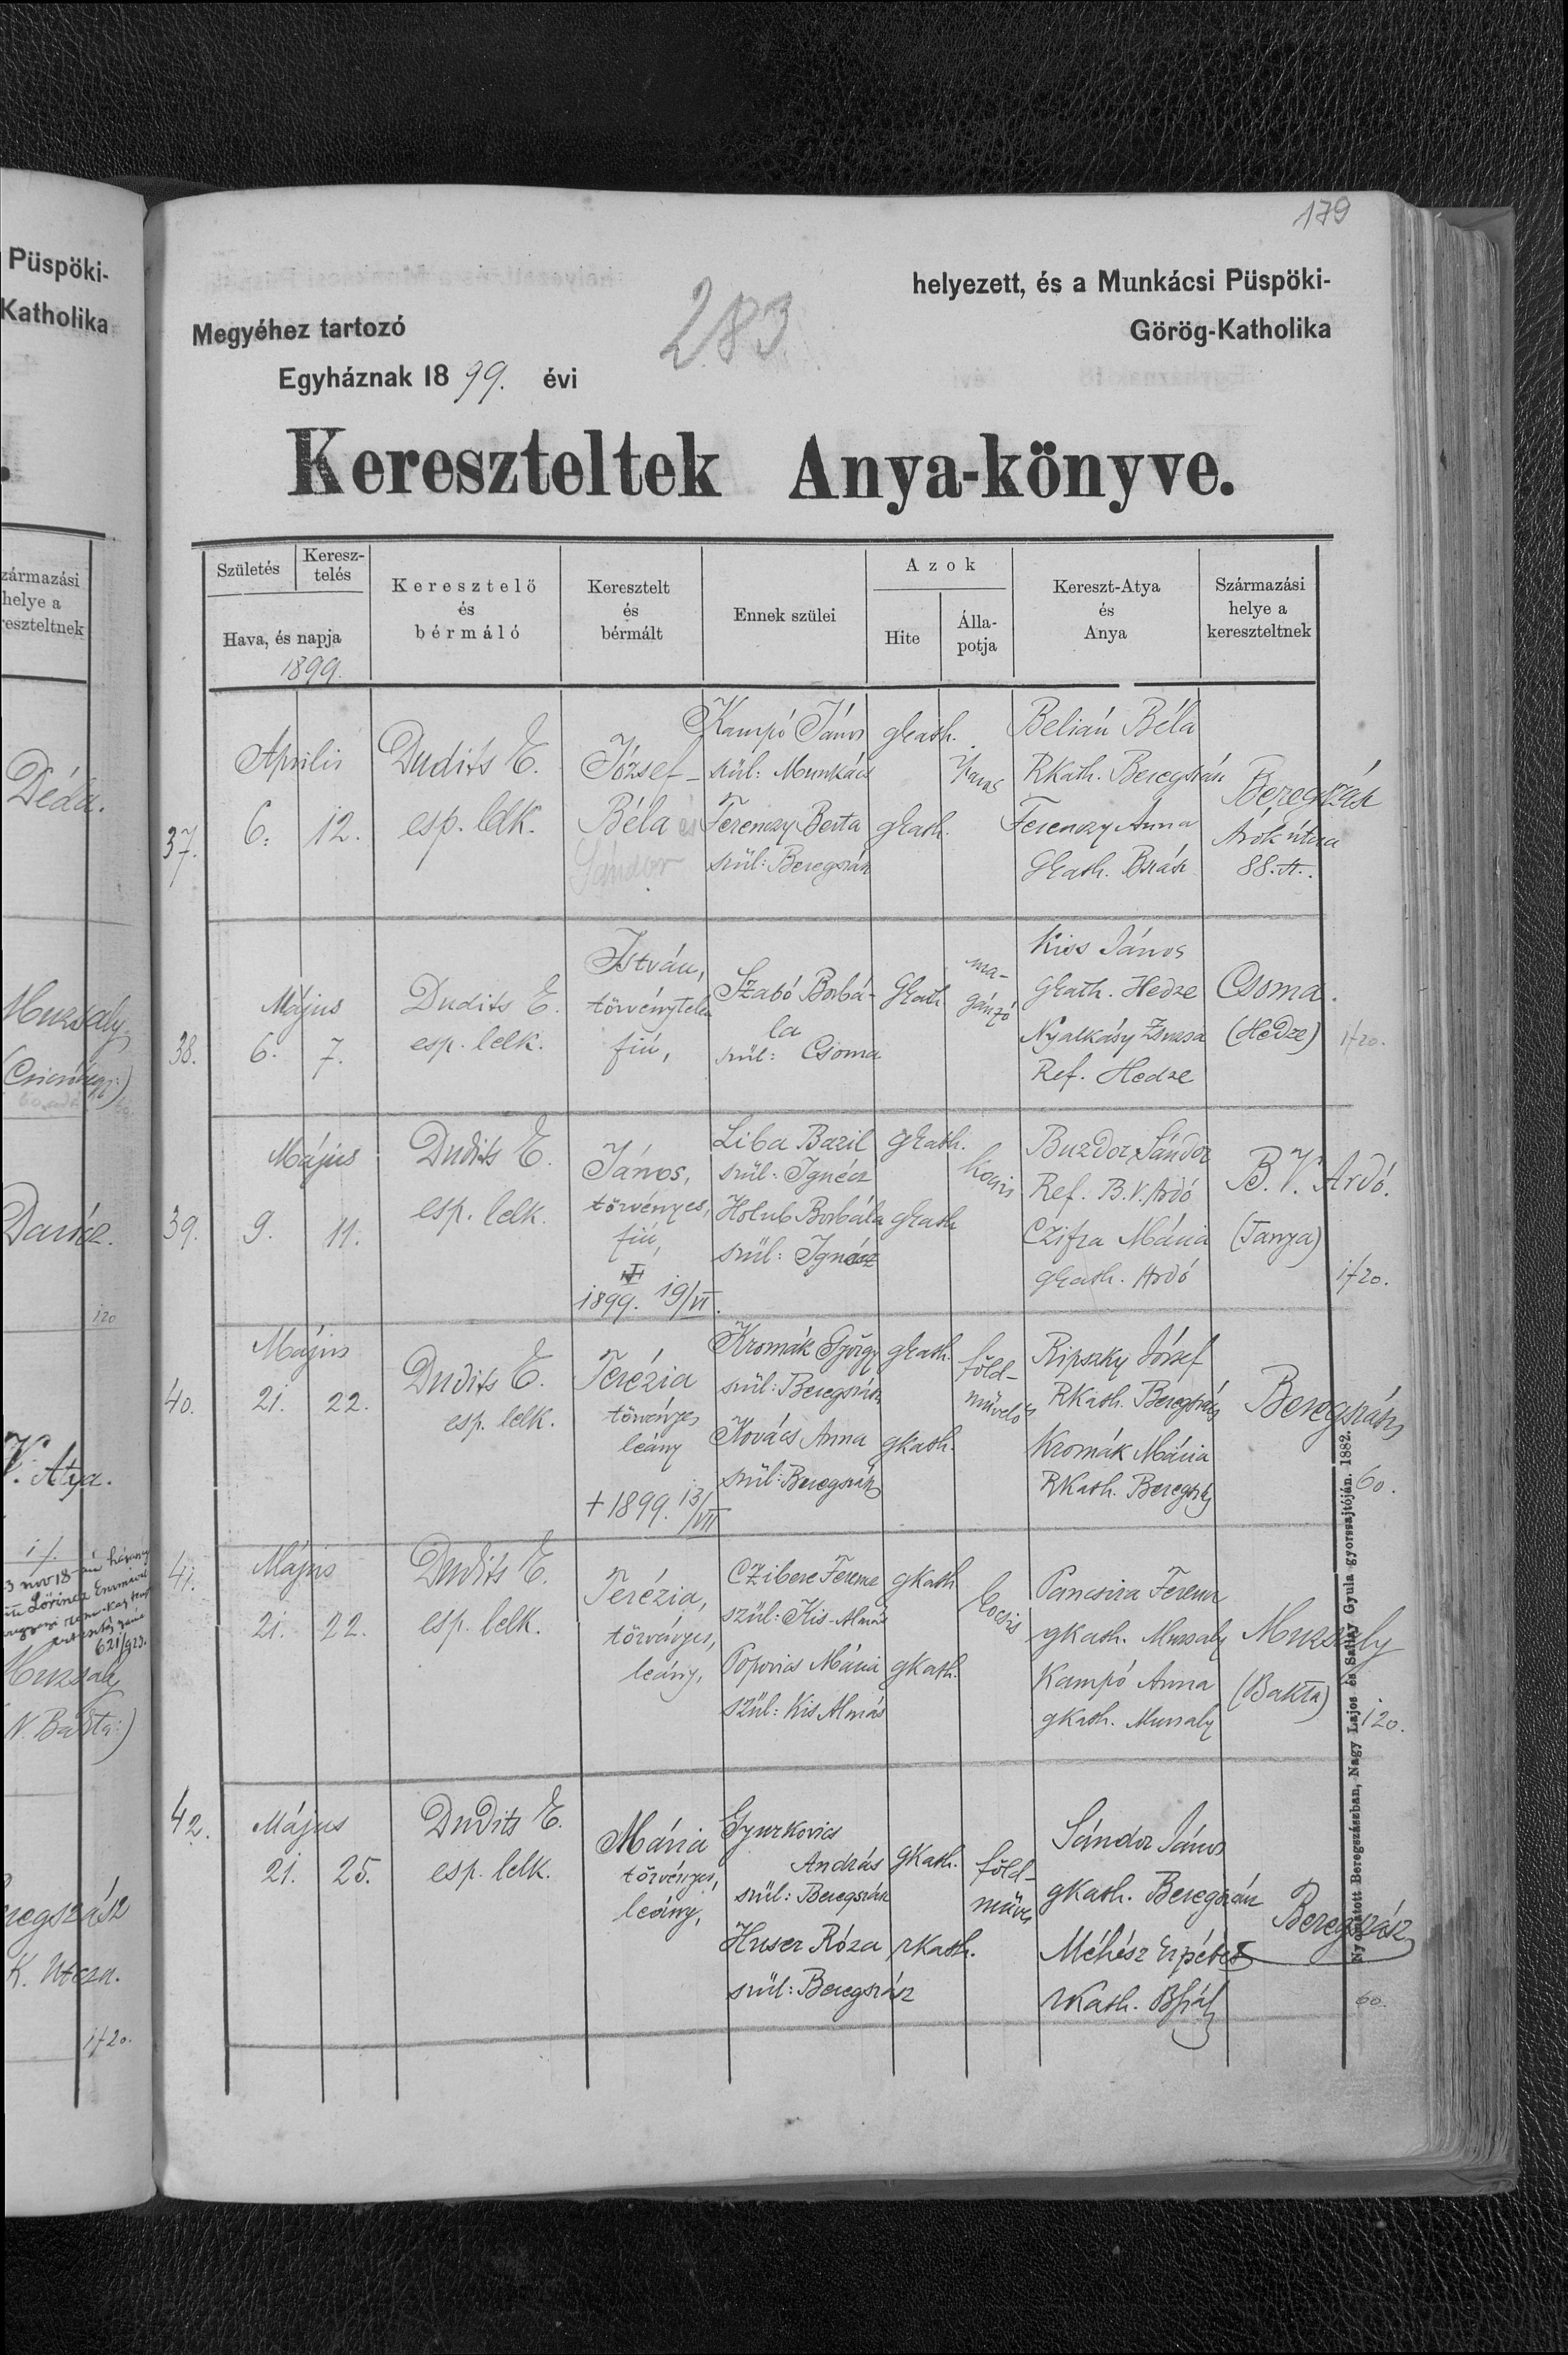 179
Püspöki-
Katholika
helyezett, és a Munkácsi Püspöki-
Megyéhez tartozó
283
Görög-Katholika
Egyháznak 1899. évi
Kereszteltek Anya-könyve.
Születés
Keresz-
telés
Hava, és napja
1899.
Keresztelö
és
bérmáló
Keresztelt
és
bérmált
Ennek szülei
Azok
Hite
Álla-
potja
Kereszt-Atya
és
Anya
Származási
helye a
kereszteltnek
37.
Aprilis
6. 12.
Dudits E.
esp. lelk.
József-
Béla és
Sándor
Kampó János
szül: Munkács
Ferenczy Berta
szül: Beregszász
gkath.
gkath.
Belián Béla
Rkath. Beregszász
Ferenczy Anna
Gkath. Bszász
Beregszász
Árok útcza
88. sz.
38.
Május
6. 7.
Dudits E.
esp. lelk.
István,
törvénytelen
fiú,
Szabó Borbá-
la
szül: Csoma
Gkath
ma-
gánzó
Kiss János
gkath. Hedze
Nyalkásy Zsuzsa
Ref. Hedze
Csoma.
(Hedze)
1f20.
39.
Május
9. 11.
Dudits E.
esp. lelk.
János,
törvényes,
fiú,
1899. 19/VI.
Liba Bazil
szül: Ignécz
Holub Borbála
szül: Ignécz
gkath.
gkath
kocsis
Buzdor Sándor
Ref. B.V. Ardó
Czifra Mária
gkath. Ardó
B.V. Ardó.
(Tanya)
1f20.
40.
Május
21. 22.
Dudits E.
esp. lelk.
Terézia
törvényes
leány
+ 1899. 13/VII
Kromák György
szül: Beregszász
Kovács Anna
szül: Beregszász
gkath.
gkath.
föld-
művelő
Ripszky József
Rkath. Beregszász
Kromák Mária
Rkath. Beregsz
Beregszász
60.
41.
Május
21. 22.
Dudits E.
esp. lelk.
Terézia,
törvényes,
leány,
Czibere Ferencz
szül: Kis-Almás
Popovics Mária
szül: Kis Almás
gkath
gkath.
kocsis
Pancsira Ferencz
gkath. Muzsaly
Kampó Anna
gkath. Muzsaly
Muzsaly
(Bakta)
120.
42.
Május
21. 25.
Dudits E.
esp. lelk.
Mária
törvényes,
leány,
Gyurkovics
András
szül: Beregszász
Huser Róza
szül: Beregszász
gkath.
rkath.
föld-
műves
Sándor János
gkath. Beregszász
Méhész Erzsébet
rkath. Bszász
Beregszász
60.
Nyomtatott Beregszászban, Nagy Lajos és Sallay Gyula gyorssajtóján. 1882.
zármazási
helye a
reszteltnek
Déda.
Muzsaly
120
Muzsaly
K. Utcza.
1f20.